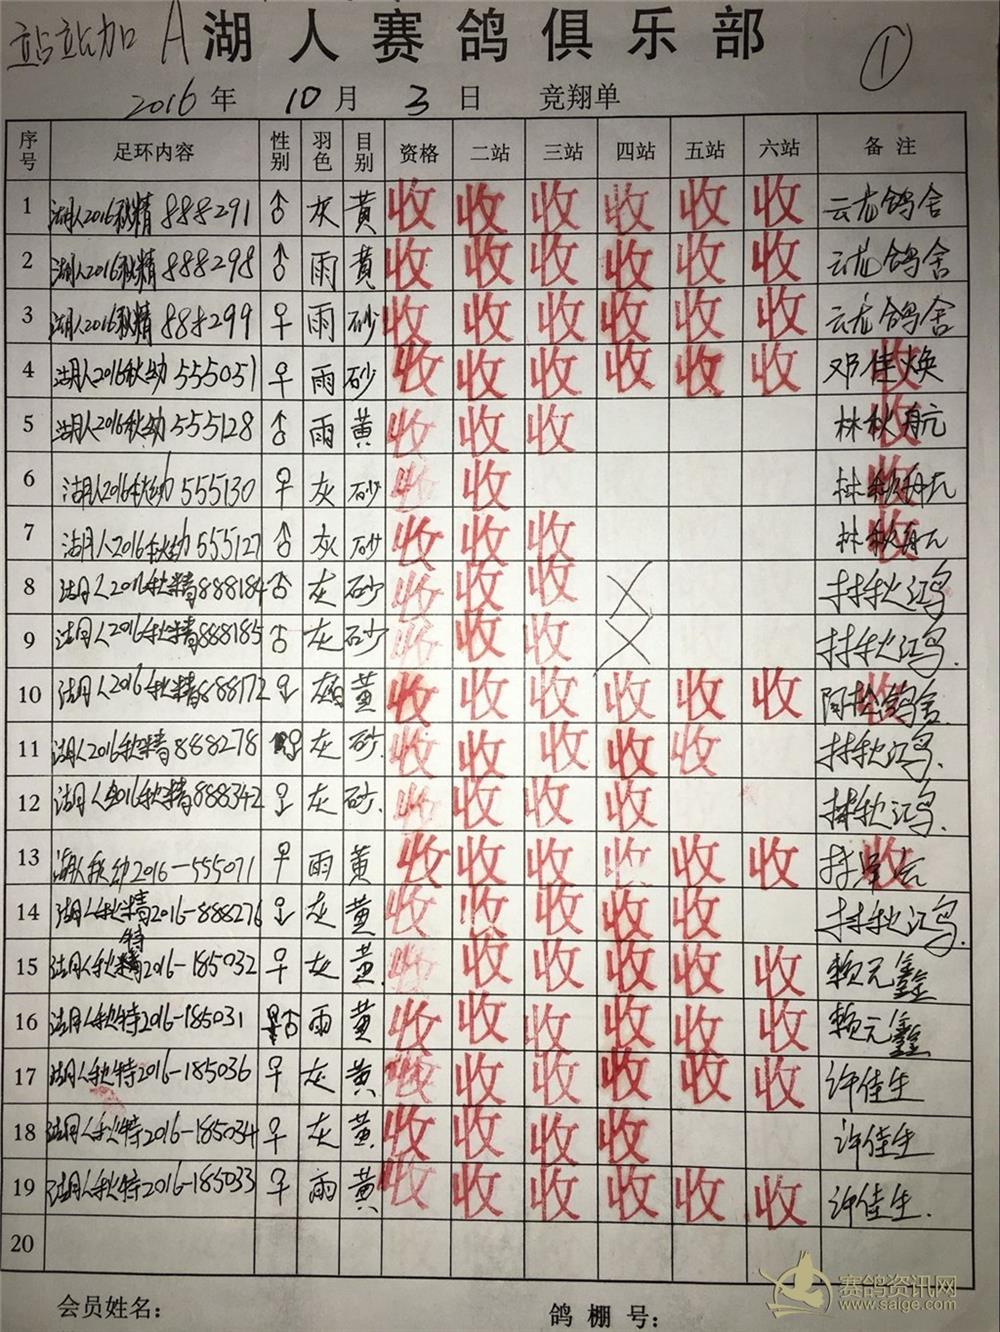 站站加 A 湖人赛鸽俱乐部 ①
2016年 10月 3日 竞翔单
序号 足环内容 性别 羽色 目别 资格 二站 三站 四站 五站 六站 备注
1 湖人2016秋精888291 ♂ 灰 黄 收 收 收 收 收 收 云龙鸽舍
2 湖人2016秋精888298 ♂ 雨 黄 收 收 收 收 收 收 云龙鸽舍
3 湖人2016秋精888299 ♀ 雨 砂 收 收 收 收 收 收 云龙鸽舍
4 湖人2016秋幼555051 ♀ 雨 砂 收 收 收 收 收 收 邓佳焕 收
5 湖人2016秋幼555128 ♂ 雨 黄 收 收 收 林秋航 收
6 湖人2016秋幼555130 ♀ 灰 砂 收 收 林秋航 收
7 湖人2016秋幼555127 ♂ 灰 砂 收 收 收 林秋航 收
8 湖人2016秋精888184 ♂ 灰 砂 收 收 收 × 林秋鸿
9 湖人2016秋精888185 ♂ 灰 砂 收 收 收 × 林秋鸿.
10 湖人2016秋精888172 ♀ 黄 收 收 收 收 收 收 鸽舍. 收
11 湖人2016秋精888278 ♀ 灰 砂 收 收 收 收 收 林秋鸿.
12 湖人2016秋精888342 ♀ 灰 砂. 收 收 收 收 林秋鸿.
13 湖人秋幼2016-555071 ♀ 雨 黄 收 收 收 收 收 收 林 收
14 湖人秋精2016-888276 ♀ 灰 黄 收 收 收 收 收 林秋鸿.
15 湖人秋特2016-185032 ♀ 灰 黄 收 收 收 收 收 收 赖元鑫
16 湖人秋特2016-185031 ♂ 雨 黄 收 收 收 收 收 收 赖元鑫
17 湖人秋特2016-185036 ♀ 灰 黄 收 收 收 收 收 收 许佳生
18 湖人秋特2016-185034 ♀ 灰 黄 收 收 收 收 许佳生
19 湖人秋特2016-185033 ♀ 雨 黄 收 收 收 收 收 收 许佳生.
20
会员姓名： 鸽棚号：
赛鸽资讯网
www.saige.com